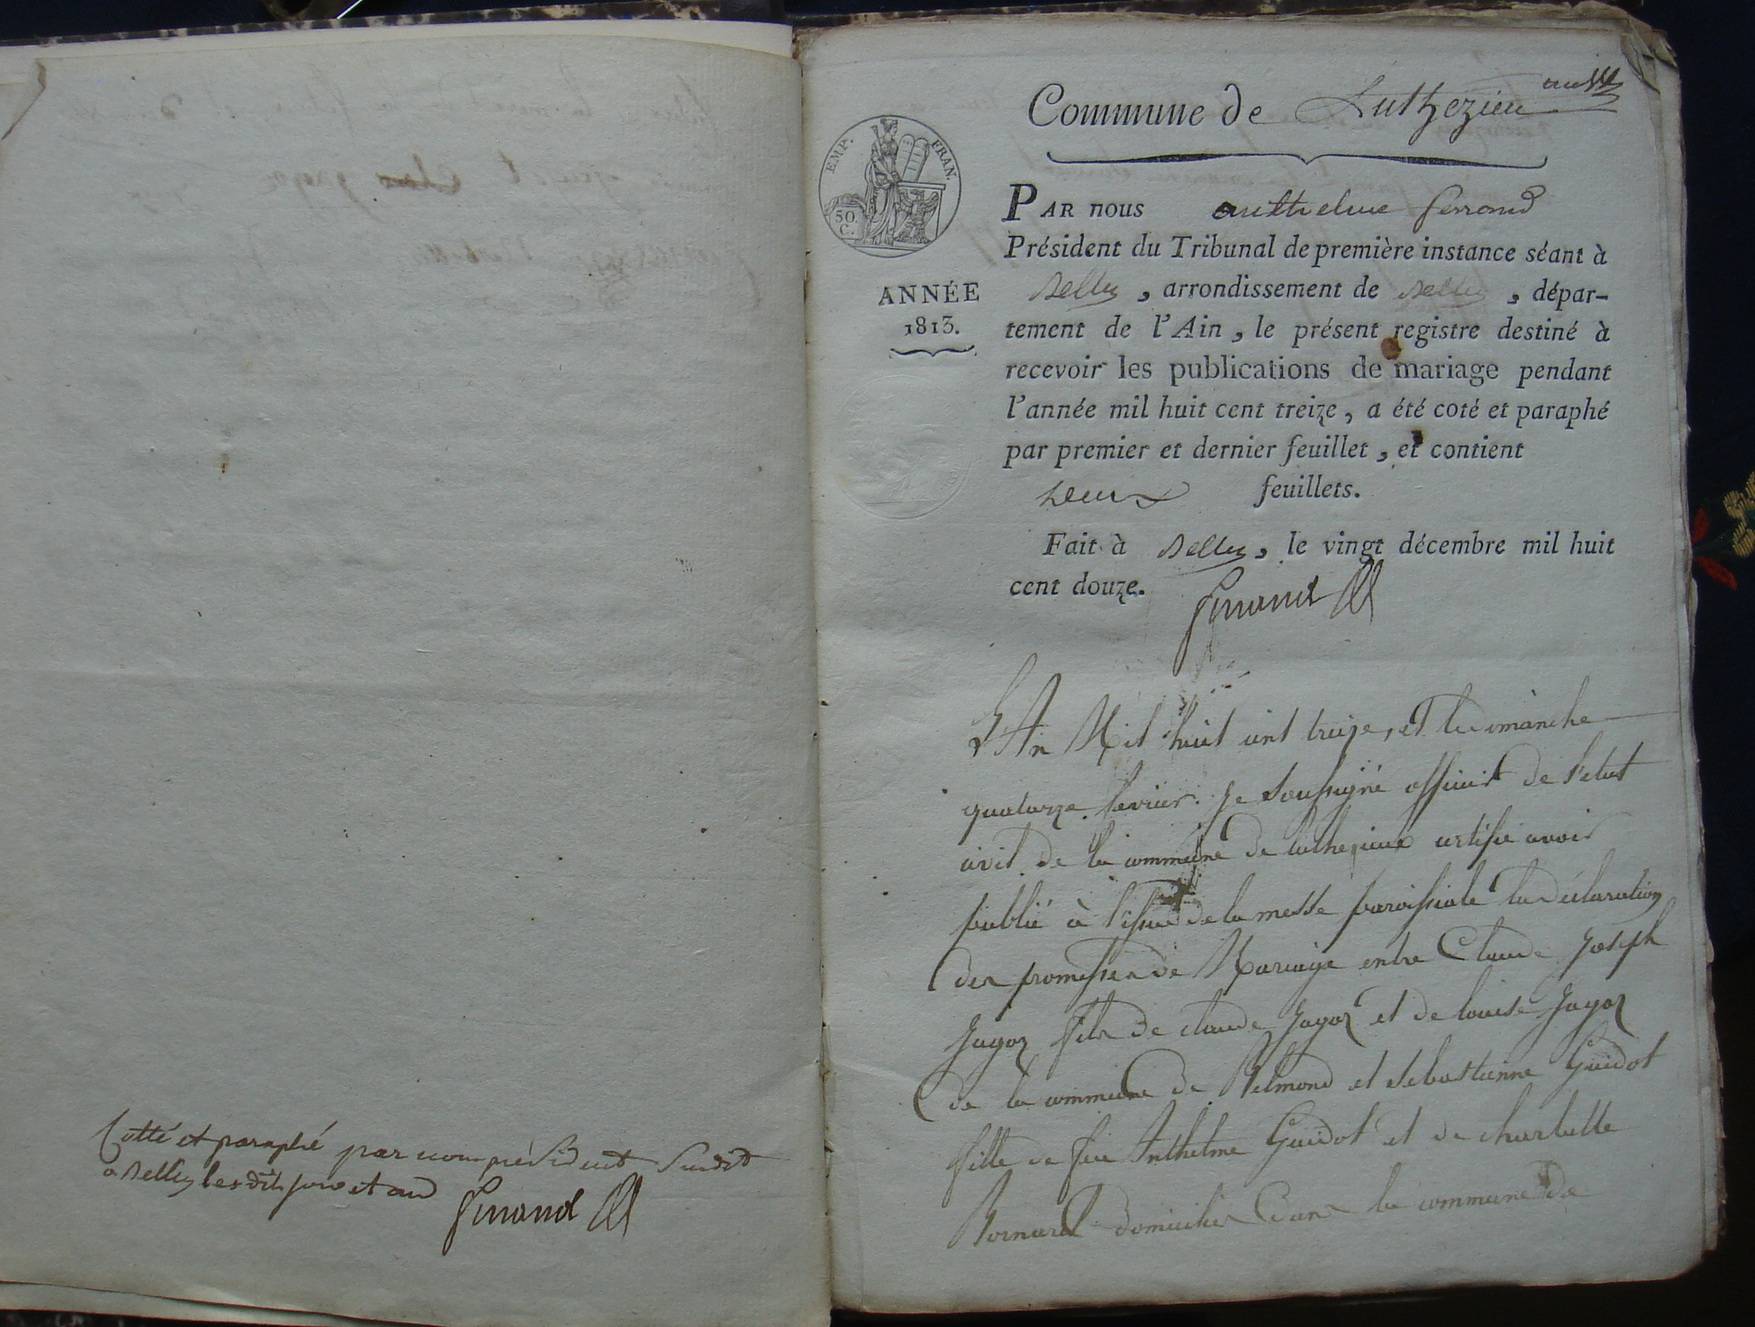 Cotté et paraphé par nous président susdit
a Belley les dits jour et an
Ferrand
Commune de Luthezieu
EMP. FRAN.
50.
C.
ANNÉE
1813.
PAR nous anthelme ferrand
Président du Tribunal de première instance séant à
Belley, arrondissement de Belley, dépar-
tement de l'Ain, le présent registre destiné à
recevoir les publications de mariage pendant
l'année mil huit cent treize, a été coté et paraphé
par premier et dernier feuillet, et contient
deux feuillets.
Fait à Belley, le vingt décembre mil huit
cent douze.
Ferrand
L'An Mil huit cent treize, et le dimanche
quatorze fevrier. Je soussigné officier de l'etat
civil de la commune de luthezieu certifie avoir
publié à l'issue de la messe paroissiale la déclaration
des promesses de Mariage entre Claude Joseph
Jagoz fils de claude Jagoz et de louise Jagoz
de la commune de Belmond et sebastienne Guidot
fille de feu Anthelme Guidot et de charlotte
Bornard domiciliés dans la commune de